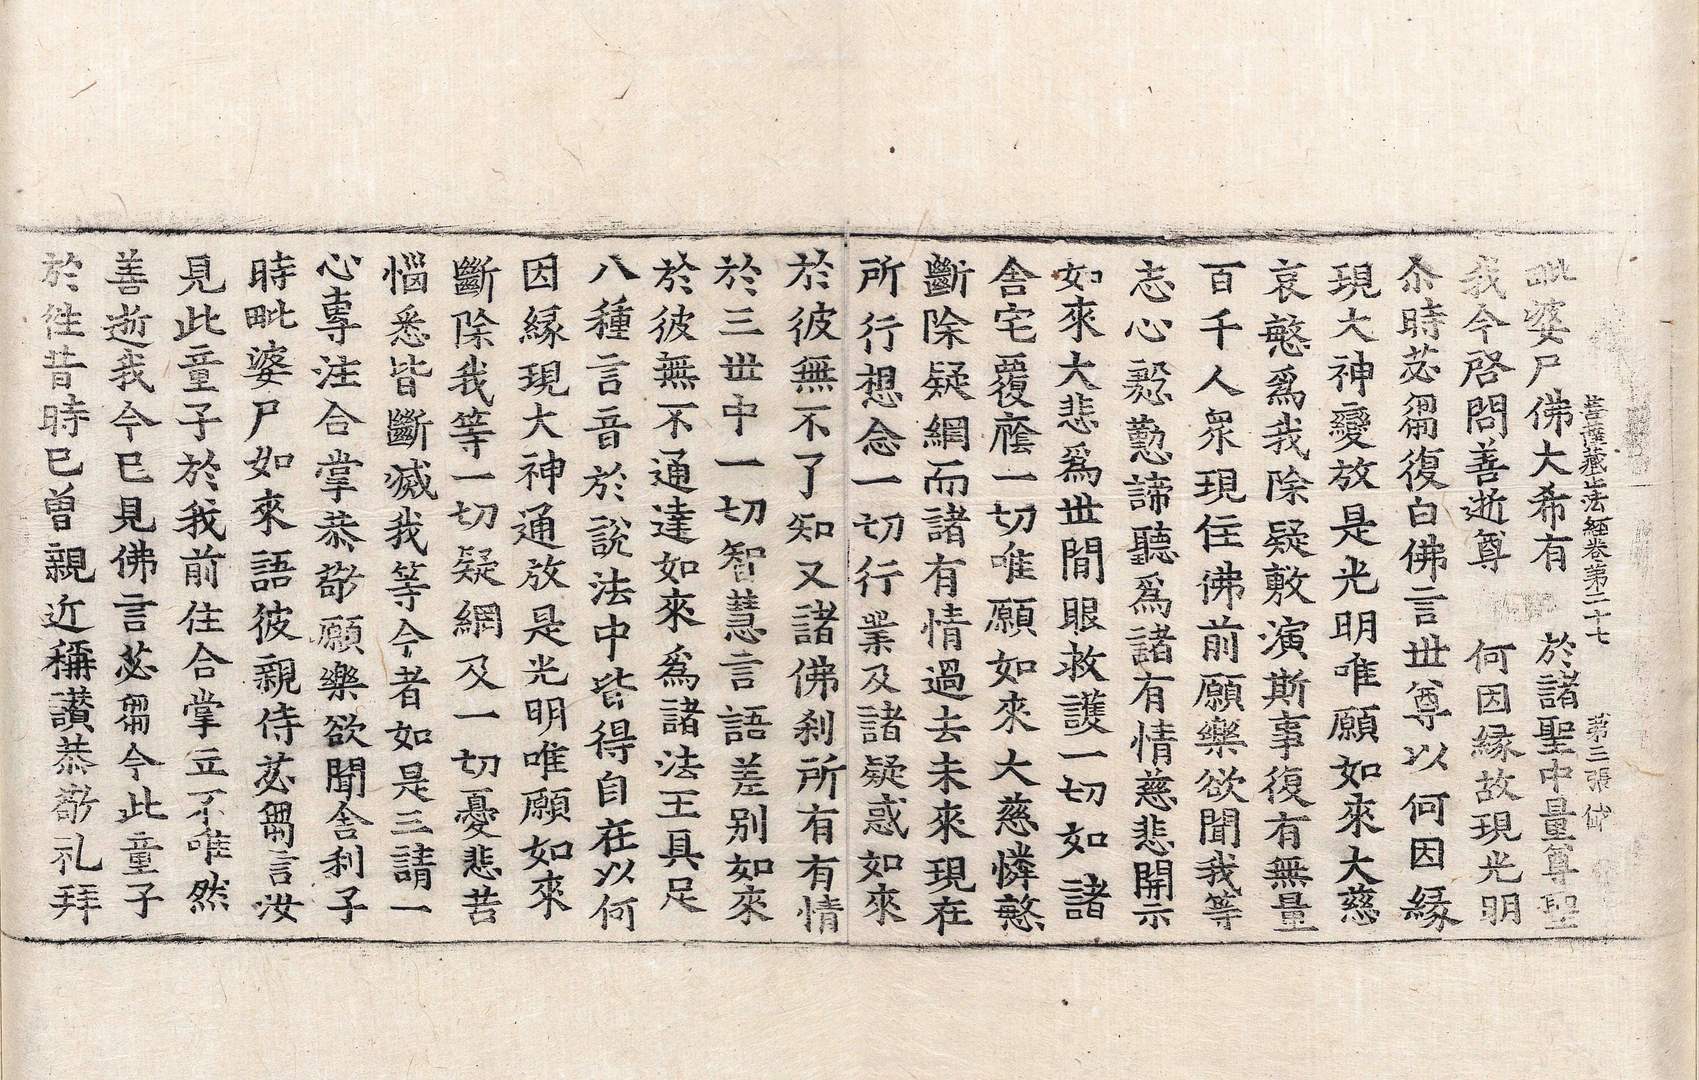 菩薩藏正法經卷第二十七 第三張
毗婆尸佛大希有 於諸聖中最尊聖
我今啓問善逝尊 何因緣故現光明
尒時苾芻復白佛言世尊以何因緣
現大神變放是光明唯願如來大慈
哀愍爲我除疑敷演斯事復有無量
百千人衆現住佛前願樂欲聞我等
志心懇懃諦聽爲諸有情慈悲開示
如來大悲爲世間眼救護一切如諸
舍宅覆蔭一切唯願如來大慈憐愍
斷除疑網而諸有情過去未來現在
所行想念一切行業及諸疑惑如來
於彼無不了知又諸佛刹所有有情
於三世中一切智慧言語差别如來
於彼無不通達如來爲諸法王具足
八種言音於說法中皆得自在以何
因緣現大神通放是光明唯願如來
斷除我等一切疑網及一切憂悲苦
惱悉皆斷滅我等今者如是三請一
心專注合掌恭敬願樂欲聞舍利子
時毗婆尸如來語彼親侍苾芻言汝
見此童子於我前住合掌立不唯然
善逝我今已見佛言苾芻今此童子
於往昔時已曾親近稱讃恭敬礼拜